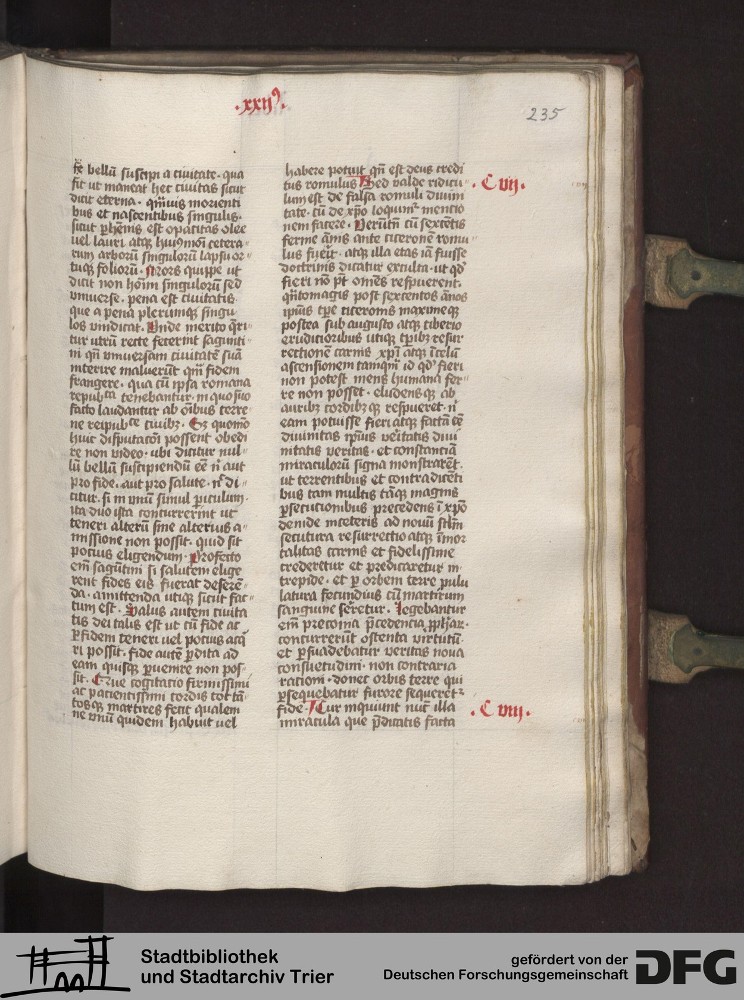 .xxijꝰ.
235
sse bellū suscipi a ciuitate. qua
fit ut maneat hec ciuitas sicut
dicit eterna. quīuis morienti
bus et nascentibus singulis.
sicut phēnis est opacitas olee
uel lauri atqꝫ huiꝰmōi cetera-
rum arborū singulorū lapsu or-
tuqꝫ foliorū. Mors quippe ut
dicit non hoīm singulorū sed
vniuerse. pena est ciuitatis.
que a pena plerumqꝫ singu
los vindicat. Unde merito q̄ri-
tur utrū recte fecerint sagunti-
ni qn̄ vniuersam ciuitatē suā
interire maluerūt qm̄ fidem
frangere. qua cū ipsa romana
republica tenebantur. in quo suo
facto laudantur ab oībus terre-
ne reipubce ciuibꝫ. Sꝫ quomō
huic disputatōi possent obedi
re non video. ubi dicitur nul-
lū bellū suscipiendū eē n̄ aut
pro fide. aut pro salute. n̄ di-
citur. si in vnū simul piculum.
ita duo ista concurrerint ut
teneri alterū sine alterius a-
missione non possit. quid sit
pocius eligendum. Profecto
em̄ sagūtini si salutem elige
rent fides eis fuerat deserē-
da. amittenda utiqꝫ sicut fac-
tum est. Salus autem ciuita
tis dei talis est ut cū fide ac
p fidem teneri vel pocius acq̄
ri possit. fide autē pdita ad
eam quisqꝫ puenire non pos-
sit. Que cogitacio firmissimi
ac pacientissimi cordis tot tā-
tosqꝫ martires fecit qualem
ne vnū quidem habuit vel
habere potuit qn̄ est deus credi
tus romulus Sed valde ridicu-
lum est de falsa romuli diuini
tate. cū de xp̄o loquimur mentio
nem facere. Uerūtn̄ cū sexcētis
ferme ānis ante ciceronē romu-
lus fuerit. atqꝫ illa etas iā fuisse
doctrinis dicatur exculta. ut qd̄
fieri nō pt̄ omēs refpuerent.
qn̄tomagis post sexcentos ānos
ipīus tpe ciceronis maximeqꝫ
postea sub augusto atqꝫ tiberio
eruditioribus utiqꝫ tpibꝫ resur
rectionē carnis xp̄i atqꝫ ī celū
ascensionem tamqm̄ id qd̄ fieri
non potest mens humana fer-
re non posset. eludensqꝫ ab
auribꝫ cordibꝫqꝫ respueret. n̄
eam potuisse fieri atqꝫ factā eē
diuinitas ipīus veritatis diui
nitatis veritas. et constanciā
miraculorū signa monstrarēt.
ut terrentibus et contradicēti
bus tam multis tāqꝫ magnis
psecutionibus precedens ī xp̄o
deinde in ceteris ad nouū sclm
secutura resurrectio atqꝫ īmor
talitas carnis et fidelissime
crederetur et predicaretur in-
trepide. et p orbem terre pulu
latura fecundius cū martirum
sanguine sēretur. Legebantur
em̄ preconia p̄cedencia pphar.
concurrerūt ostenta virtutū.
et psuadebatur veritas noua
consuetudini. non contraria
rationi. donec orbis terre qui
psequebatur furore sequeretur
fide. Cur inquiunt nūc illa
miracula que p̄dicatis facta
. C vij.
. C viij.
Stadtbibliothek
und Stadtarchiv Trier
gefördert von der
Deutschen Forschungsgemeinschaft
DFG